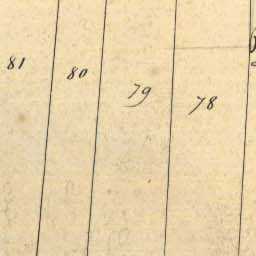 81 80 79 78